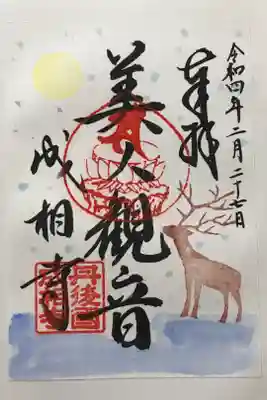 令和四年二月二十七日
奉拝
美人観音
成相寺